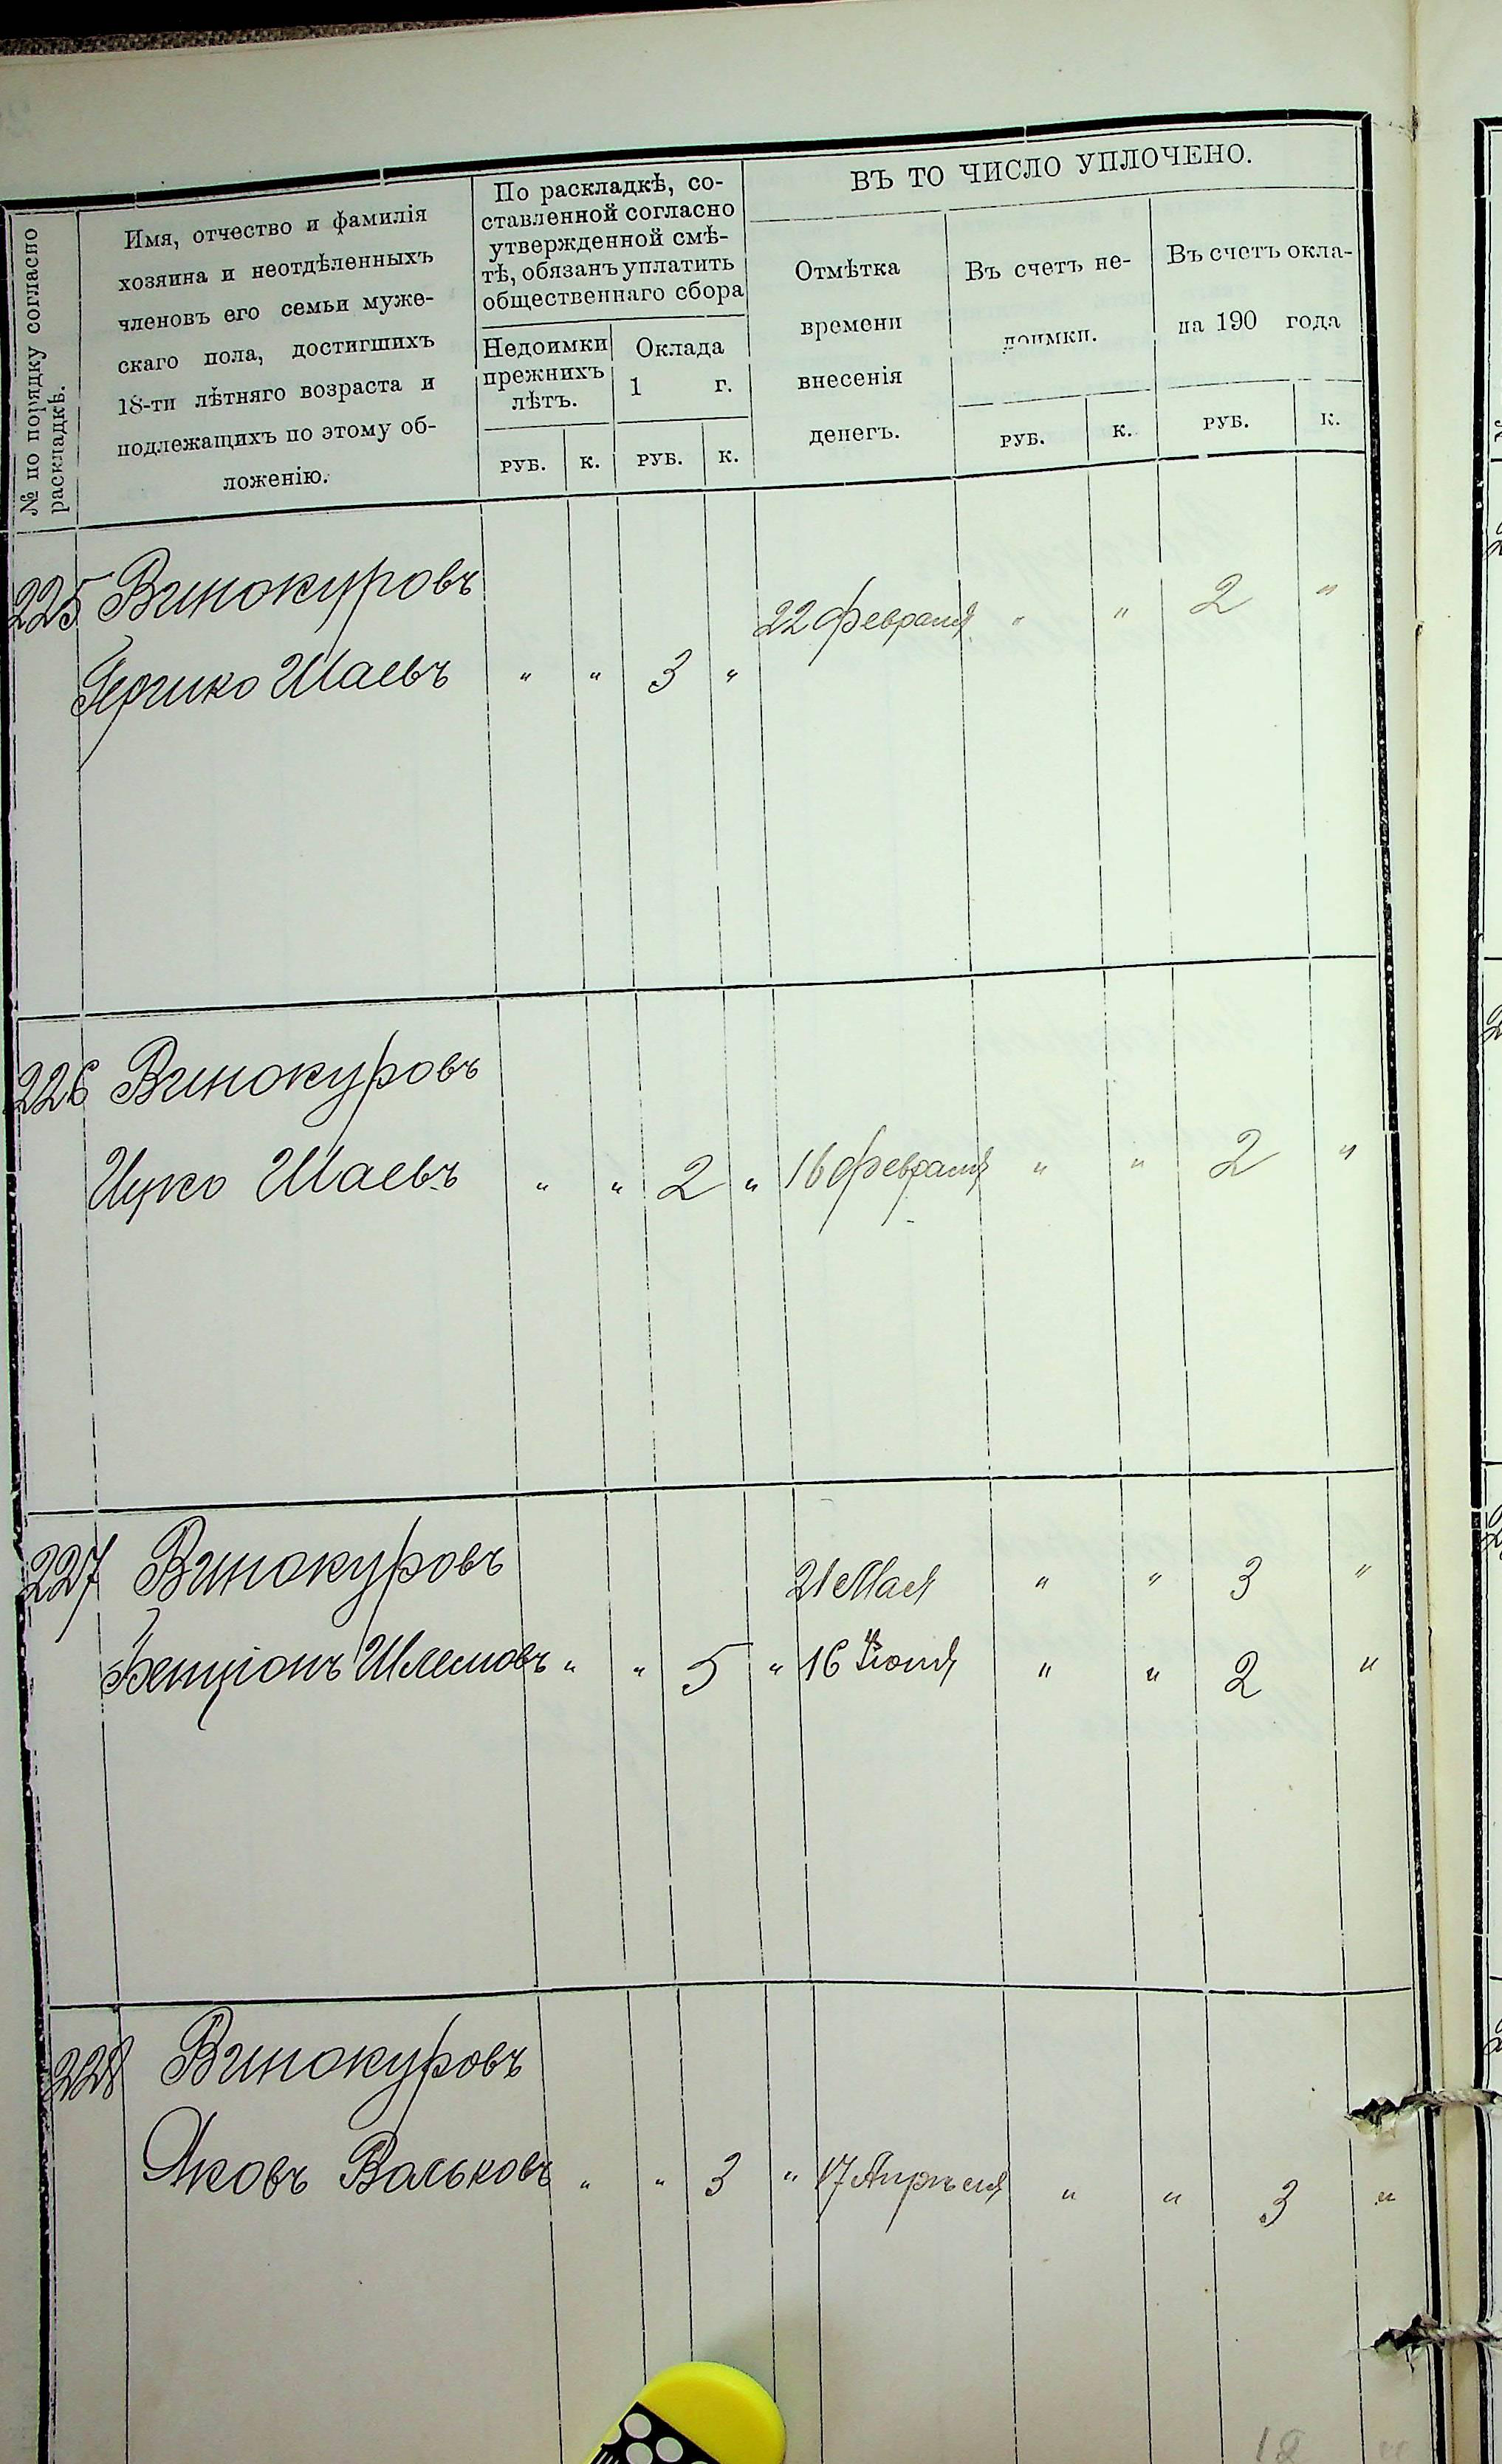 № по порядку согласно
раскладкѣ.
Имя, отчество и фамилія
хозяина и неотдѣленныхъ
членовъ его семьи муже-
скаго пола, достигшихъ
18-ти лѣтняго возраста и
подлежащихъ по этому об-
ложенію.
По раскладкѣ, со-
ставленной согласно
утвержденной смѣ-
тѣ, обязанъ уплатить
общественнаго сбора
Недоимки
прежнихъ
лѣтъ.
Оклада
1 г.
РУБ. К. РУБ. К.
ВЪ ТО ЧИСЛО УПЛОЧЕНО.
Отмѣтка
времени
внесенія
денегъ.
Въ счетъ не-
доимки.
Въ счетъ окла-
на 190 года
РУБ. К. РУБ. К.
225 Винокуровъ
22 Февраля " " 2 "
Шаевъ " " 3 "
226 Винокуровъ
Ицко Шаевъ " " 2 " 16 Февраля " " 2 "
227 Винокуровъ 21 Мая " " 3 "
Бенціонъ Шлемовъ " " 5 " 16 Іюня " " 2 "
228 Винокуровъ
Яковъ Вольковъ " " 3 " 17 Апрѣля " " 3 "
18 "